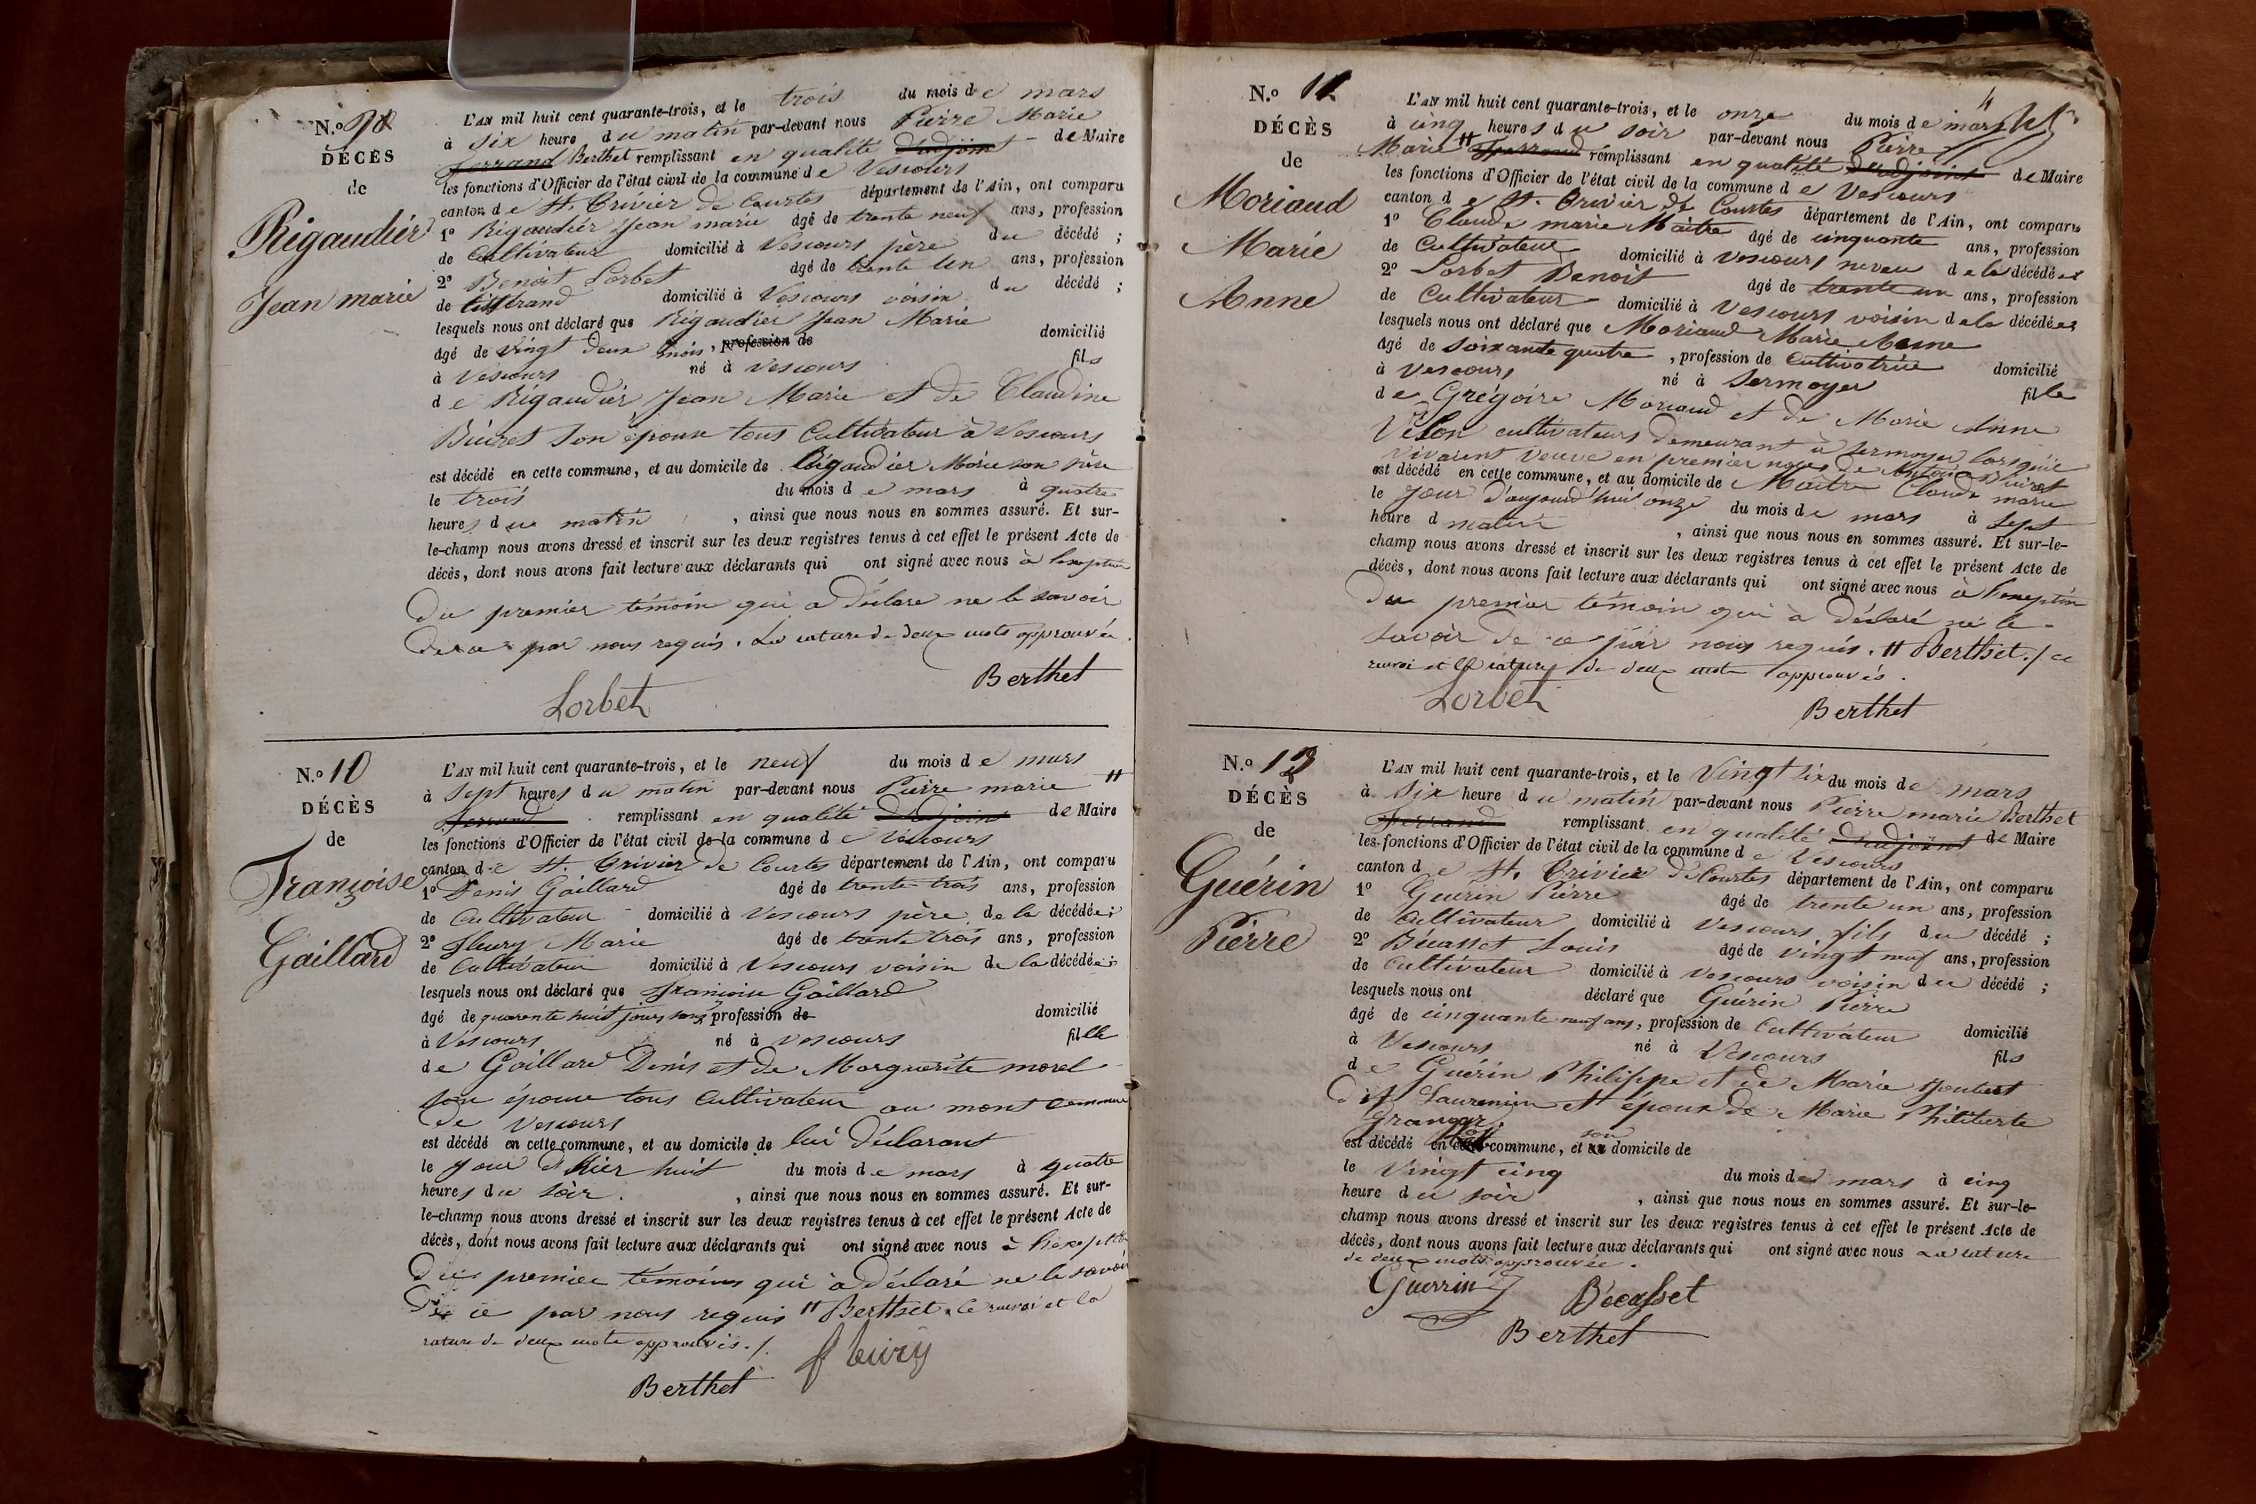 N.º 9
DÉCÈS
de
Rigaudier
Jean marie
L'AN mil huit cent quarante-trois, et le trois du mois de mars
à six heure du matin par-devant nous Pierre Marie
Ferrand Berthet remplissant en qualité d'adjoint de Maire
les fonctions d'Officier de l'état civil de la commune de Vescours
canton de St. Trivier de Courtes département de l'Ain, ont comparu
1º Rigaudier Jean marie âgé de trente neuf ans, profession
de Cultivateur domicilié à Vescours père du décédé ;
2º Benoit Lorbet âgé de trente un ans, profession
de domicilié à Vescours voisin du décédé ;
lesquels nous ont déclaré que Rigaudier Jean Marie
âgé de vingt deux mois, profession de domicilié
à Vescours né à Vescours fils
de Rigaudier Jean Marie et de Claudine
son épouse tous Cultivateur à Vescours
est décédé en cette commune, et au domicile de Rigaudier Marie son père
le trois du mois de mars à quatre
heures du matin, ainsi que nous nous en sommes assuré. Et sur-
le-champ nous avons dressé et inscrit sur les deux registres tenus à cet effet le présent Acte de
décès, dont nous avons fait lecture aux déclarants qui ont signé avec nous à l'exception
du premier témoin qui a déclaré ne le savoir
de ce par nous requis. La rature de deux mots approuvée
Lorbet Berthet
N.º 10
DÉCÈS
de
Françoise
Gaillard
L'AN mil huit cent quarante-trois, et le neuf du mois de mars
à sept heures du matin par-devant nous Pierre marie "
Ferrand remplissant en qualité d'adjoint de Maire
les fonctions d'Officier de l'état civil de la commune de Vescours
canton de St. Trivier de Courtes département de l'Ain, ont comparu
1º Denis Gaillard âgé de trente trois ans, profession
de Cultivateur domicilié à Vescours père de la décédée ;
2º Fleury Marie âgé de trente trois ans, profession
de Cultivateur domicilié à Vescours voisin de la décédée ;
lesquels nous ont déclaré que Françoise Gaillard
âgé de quarante huit jours sans profession de domicilié
à Vescours né à Vescours fille
de Gaillard Denis et de Marguerite morel
son épouse tous Cultivateur au mont commune
de Vescours
est décédé en cette commune, et au domicile de lui déclarant
le jour d'Hier huit du mois de mars à quatre
heures du soir, ainsi que nous nous en sommes assuré. Et sur-
le-champ nous avons dressé et inscrit sur les deux registres tenus à cet effet le présent Acte de
décès, dont nous avons fait lecture aux déclarants qui ont signé avec nous à l'exception
du premier témoins qui a déclaré ne le savoir
de ce par nous requis " Berthet. Le renvoi et la
rature de deux mots approuvés./.
Berthet fleury
N.º 11
DÉCÈS
de
Moriaud
Marie
Anne
L'AN mil huit cent quarante-trois, et le onze du mois de mars
à cinq heures du soir par-devant nous Pierre
Marie " Ferrand remplissant en qualité d'adjoint de Maire
les fonctions d'Officier de l'état civil de la commune de Vescours
canton de St. Trivier de Courtes département de l'Ain, ont comparu
1º Claude marie Maitre âgé de cinquante ans, profession
de Cultivateur domicilié à Vescours neveu de la décédée
2º Lorbet Benoit âgé de trente un ans, profession
de Cultivateur domicilié à Vescours voisin de la décédée
lesquels nous ont déclaré que Moriaud Marie Anne
âgé de soixante quatre, profession de Cultivatrice domicilié
à Vescours né à Sermoyer fille
de Grégoire Moriaud et de Marie Anne
Vélon cultivateurs demeurant à Sermoyer lorsqu'ils
vivaient Veuve en premier noces de Antoine
est décédé en cette commune, et au domicile de Maitre Claude marie
le jour d'aujourd'hui onze du mois de mars à sept
heure d matin, ainsi que nous nous en sommes assuré. Et sur-le-
champ nous avons dressé et inscrit sur les deux registres tenus à cet effet le présent Acte de
décès, dont nous avons fait lecture aux déclarants qui ont signé avec nous à l'exception
du premier témoin qui à déclaré ne le
savoir de ce par nous requis. " Berthet ./ ce
renvoi et la rature de deux mots approuvés.
Lorbet Berthet
N.º 12
DÉCÈS
de
Guérin
Pierre
L'AN mil huit cent quarante-trois, et le Vingt six du mois de mars
à six heure du matin par-devant nous Pierre marie Berthet
Ferrand remplissant en qualité d'adjoint de Maire
les fonctions d'Officier de l'état civil de la commune de Vescours
canton de St. Trivier de Courtes département de l'Ain, ont comparu
1º Guérin Pierre âgé de trente un ans, profession
de Cultivateur domicilié à Vescours fils du décédé ;
2º Bécasset Louis âgé de vingt neuf ans, profession
de Cultivateur domicilié à Vescours voisin du décédé ;
lesquels nous ont déclaré que Guérin Pierre
âgé de cinquante neuf ans, profession de Cultivateur domicilié
à Vescours né à Vescours fils
de Guérin Philippe et de Marie
dit Laurencin et époux de Marie Philiberte
est décédé en commune, et son domicile de
le Vingt cinq du mois de mars à cinq
heure du soir, ainsi que nous nous en sommes assuré. Et sur-le-
champ nous avons dressé et inscrit sur les deux registres tenus à cet effet le présent Acte de
décès, dont nous avons fait lecture aux déclarants qui ont signé avec nous La rature
de deux mots approuvée.
Guerrin Bécasset
Berthet